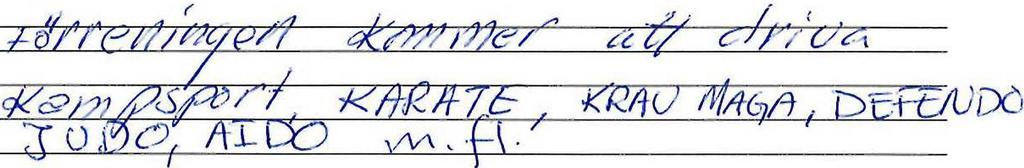 Förreningen kommer att driva
Kampsport, KARATE, KRAV MAGA, DEFENDO
JUDO, AIDO m.fl.